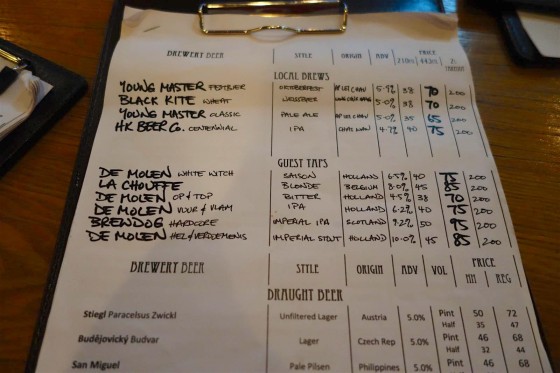 BREWERY BEER STYLE ORIGIN ABV PRICE
210ML 443ML 2L TAKEOUT
LOCAL BREWS
YOUNG MASTER OKTOBERFEST AP LEI CHAU 38 70 200
BLACK KITE WHEAT WONG CHUK HANG 5.0% 38 70 200
YOUNG MASTER CLASSIC PALE ALE AP LEI CHAU 5.0% 35 65 200
HK BEER Co. CENTENNIAL IPA CHAI WAN 4.7% 40 75 200
GUEST TAPS
DE MOLEN WHITE WITCH SAISON HOLLAND 6.5% 40 75 200
LA CHOUFFE BLONDE BELGIUM 8.0% 45 85 200
DE MOLEN OP & TOP BITTER HOLLAND 4.5% 38 70 200
DE MOLEN VUUR & VLAM IPA HOLLAND 6.2% 40 75 200
BREWDOG HARDCORE IMPERIAL IPA SCOTLAND 9.2% 50 95 200
DE MOLEN HEL & VERDEMENIS IMPERIAL STOUT HOLLAND 10.0% 45 85 200
BREWERY BEER STYLE ORIGIN ABV VOL PRICE
HH REG
DRAUGHT BEER
Stiegl Paracelsus Zwickl Unfiltered Lager Austria 5.0% Pint 50 72
Half 35 47
Budějovický Budvar Lager Czech Rep 5.0% Pint 46 68
Half 32 44
San Miguel Pale Pilsen Philippines 5.0% Pint 46 68